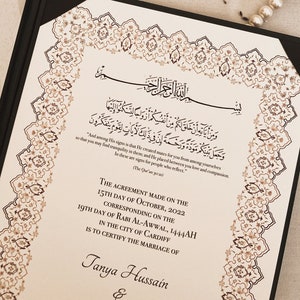 بسم الله الرحمن الرحيم
"And among His signs is that He created mates for you from among yourselves
so that you may find tranquility in them; and He placed between you love and compassion.
In these are signs for people who reflect."
(The Qur'an 30:21)
THE AGREEMENT MADE ON THE
15TH DAY OF OCTOBER, 2022
CORRESPONDING ON THE
19TH DAY OF RABI AL-AWWAL, 1444AH
IN THE CITY OF CARDIFF
IS TO CERTIFY THE MARRIAGE OF
Tanya Hussain
&